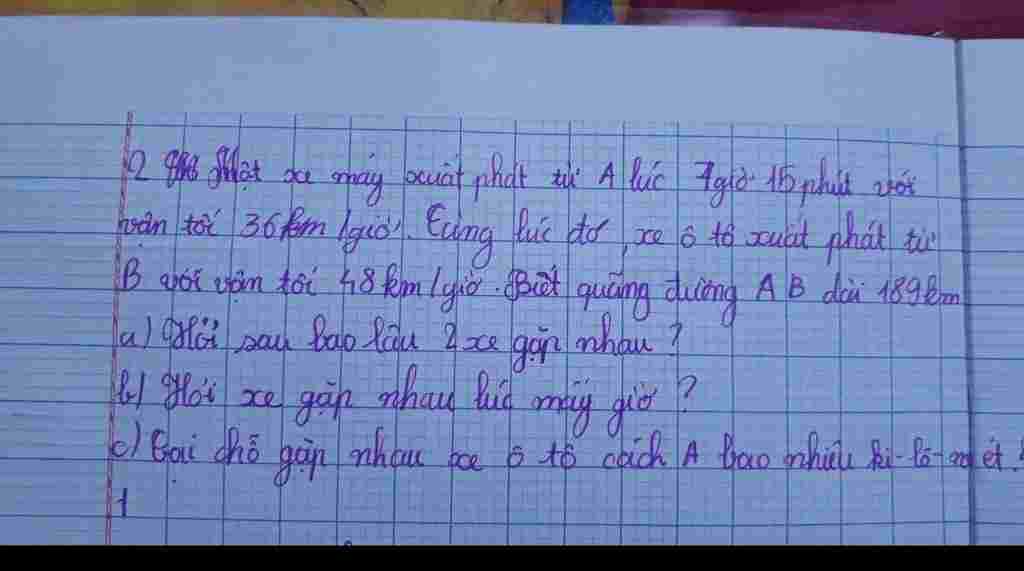 2 Một xe máy xuất phát từ A lúc 7giờ 15phút với
vận tốc 36km/giờ. Cùng lúc đó, xe ô tô xuất phát từ
B với vận tốc 48km/giờ. Biết quãng đường AB dài 189km
a) Hỏi sau bao lâu 2 xe gặp nhau?
b) Hỏi xe gặp nhau lúc mấy giờ?
c) Tại chỗ gặp nhau xe ô tô cách A bao nhiêu ki-lô-mét?
1